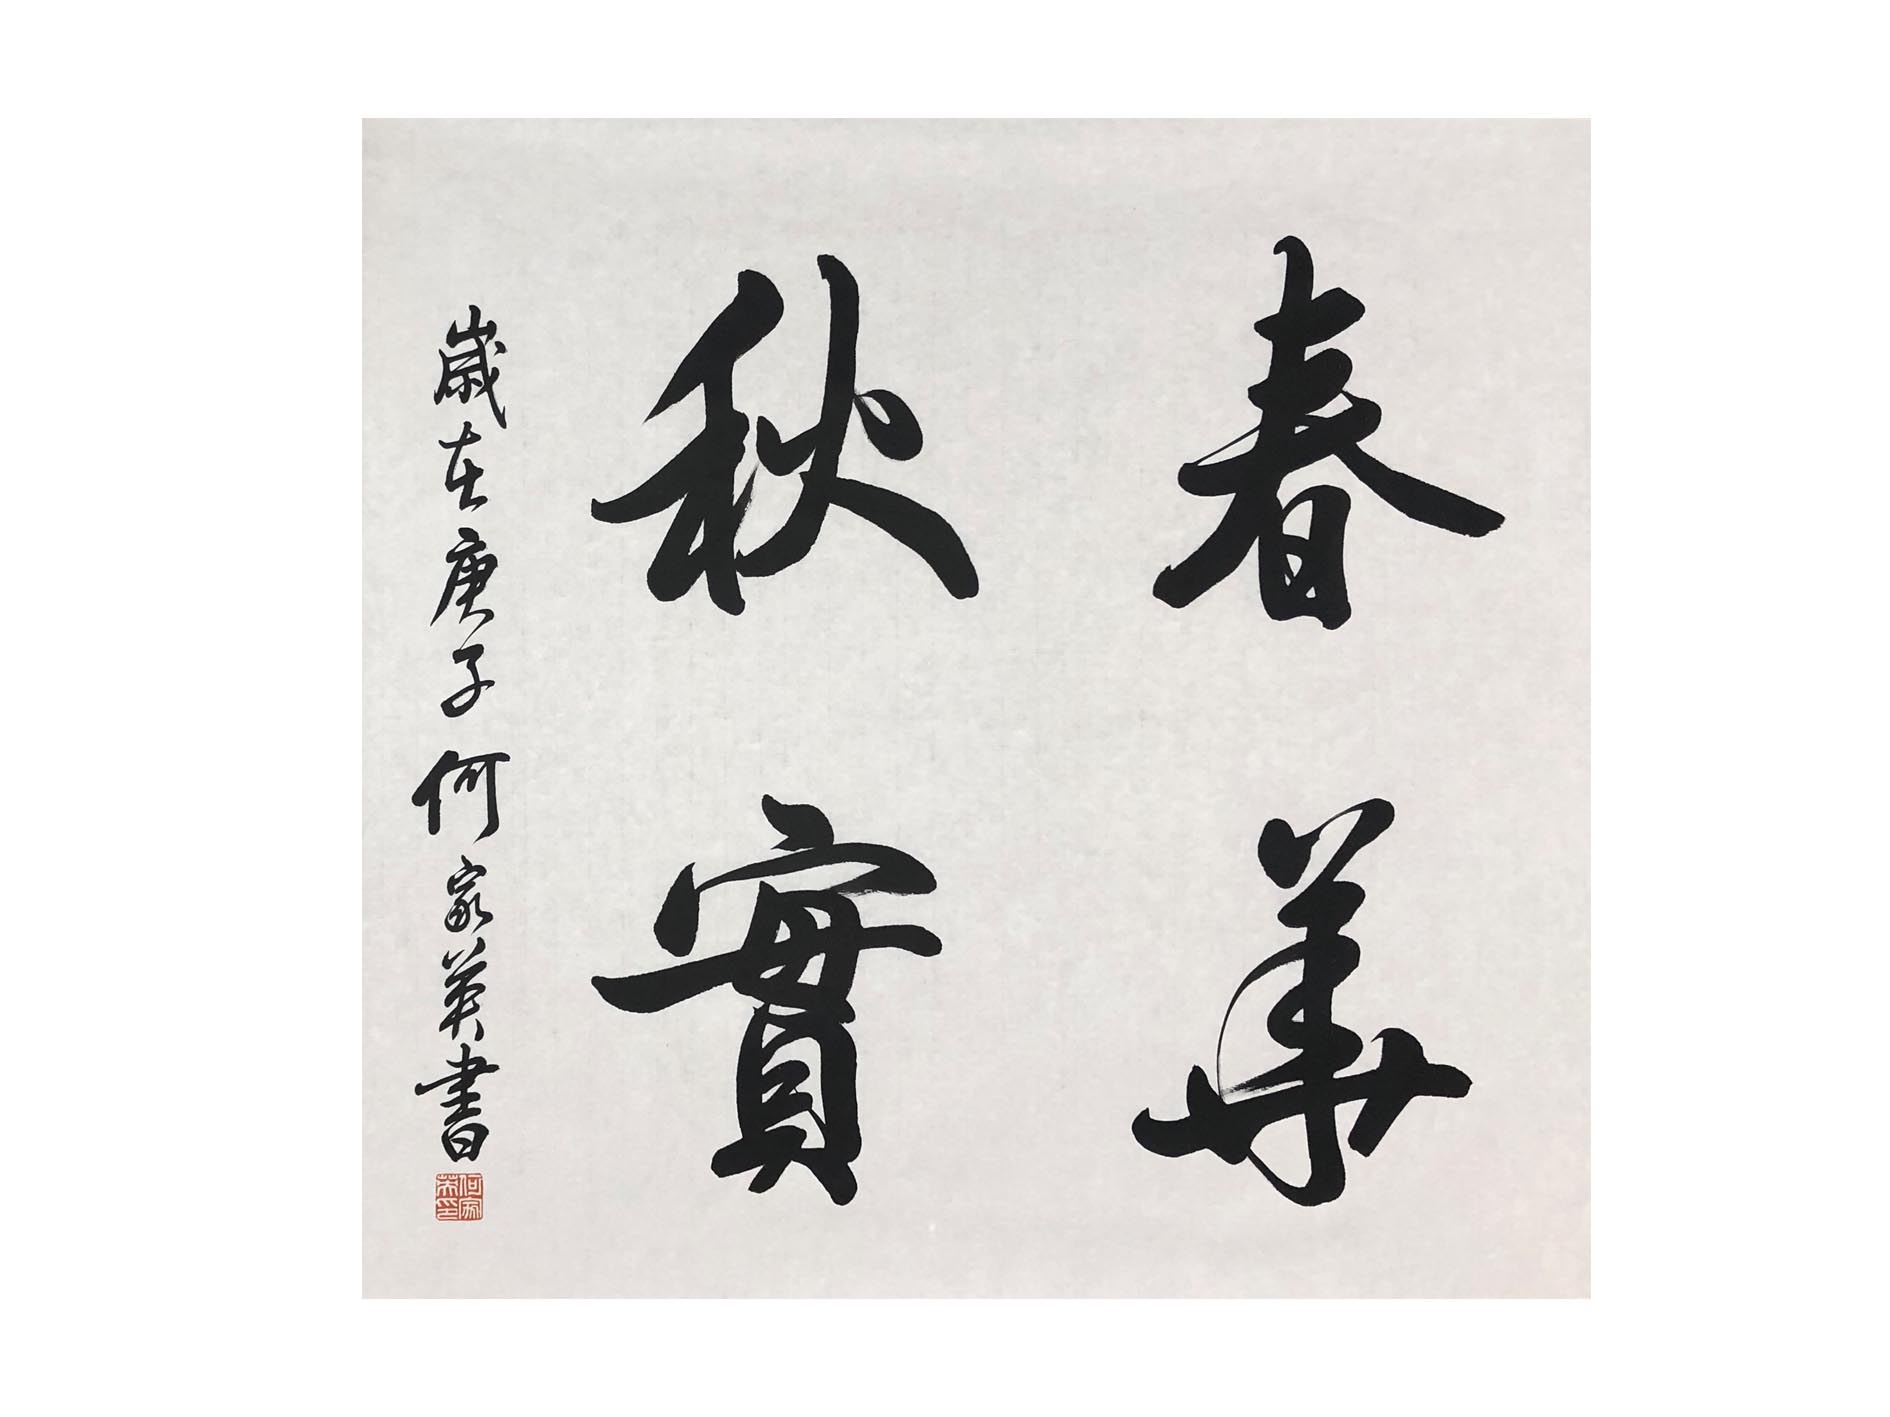 春華
秋實
歲在庚子何家英書
何家英印